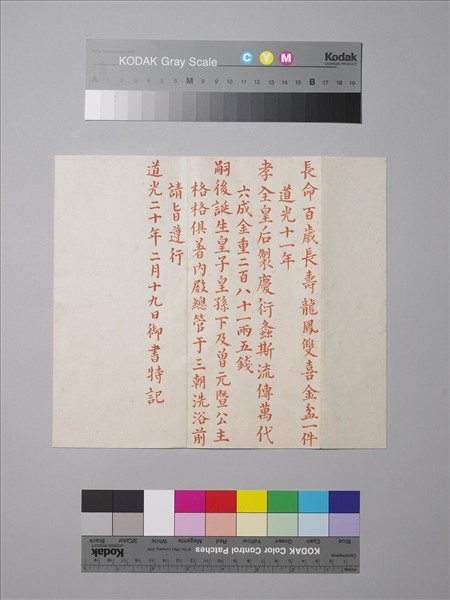 KODAK Gray Scale
C Y M
Kodak
LICENSED PRODUCT
A 1 2 3 4 5 6 M 8 9 10 11 12 13 14 15 B 17 18 19
長命百歲長壽龍鳳雙喜金盆一件
道光十一年
孝全皇后製慶衍螽斯流傳萬代
六成金重二百八十一兩五錢
嗣後誕生皇子皇孫下及曾元暨公主
格格俱著內殿總管于三朝洗浴前
請旨遵行
道光二十年二月十九日御書特記
KODAK Color Control Patches
Kodak
LICENSED PRODUCT
Blue Cyan Green Yellow Red Magenta White 3/Color Black